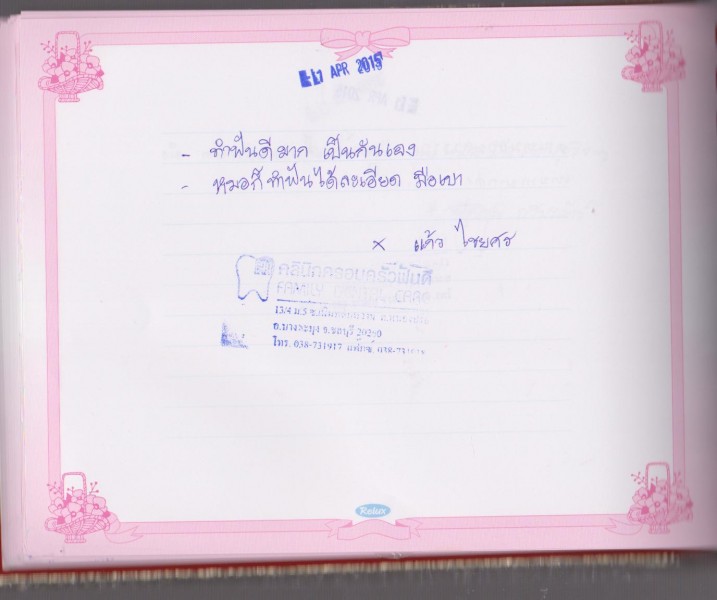 APR 2015
- ทำฟันดีมาก เป็นกันเอง
- หมอก็ทำฟันได้ละเอียด มือเบา
x แก้ว ไชยศร
คลินิกครอบครัวฟันดี
FAMILY DENTAL CARE
13/4 ม.5
อ.บางละมุง จ.ชลบุรี 20260
โทร. 038-731917 แฟ็กซ์
Relux